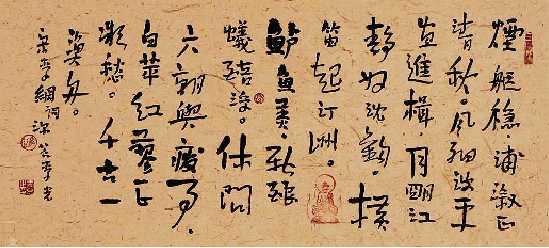 煙艇穩，浦溆正
清秋。風細波平
宜進楫，月明江
靜好沈鉤，橫
笛起汀洲。
鱸魚美，新釀
蟻醅浮。休問
六朝興廢事，
白蘋紅蓼正
凝愁。千古一
漁舟。
宋李綱詞